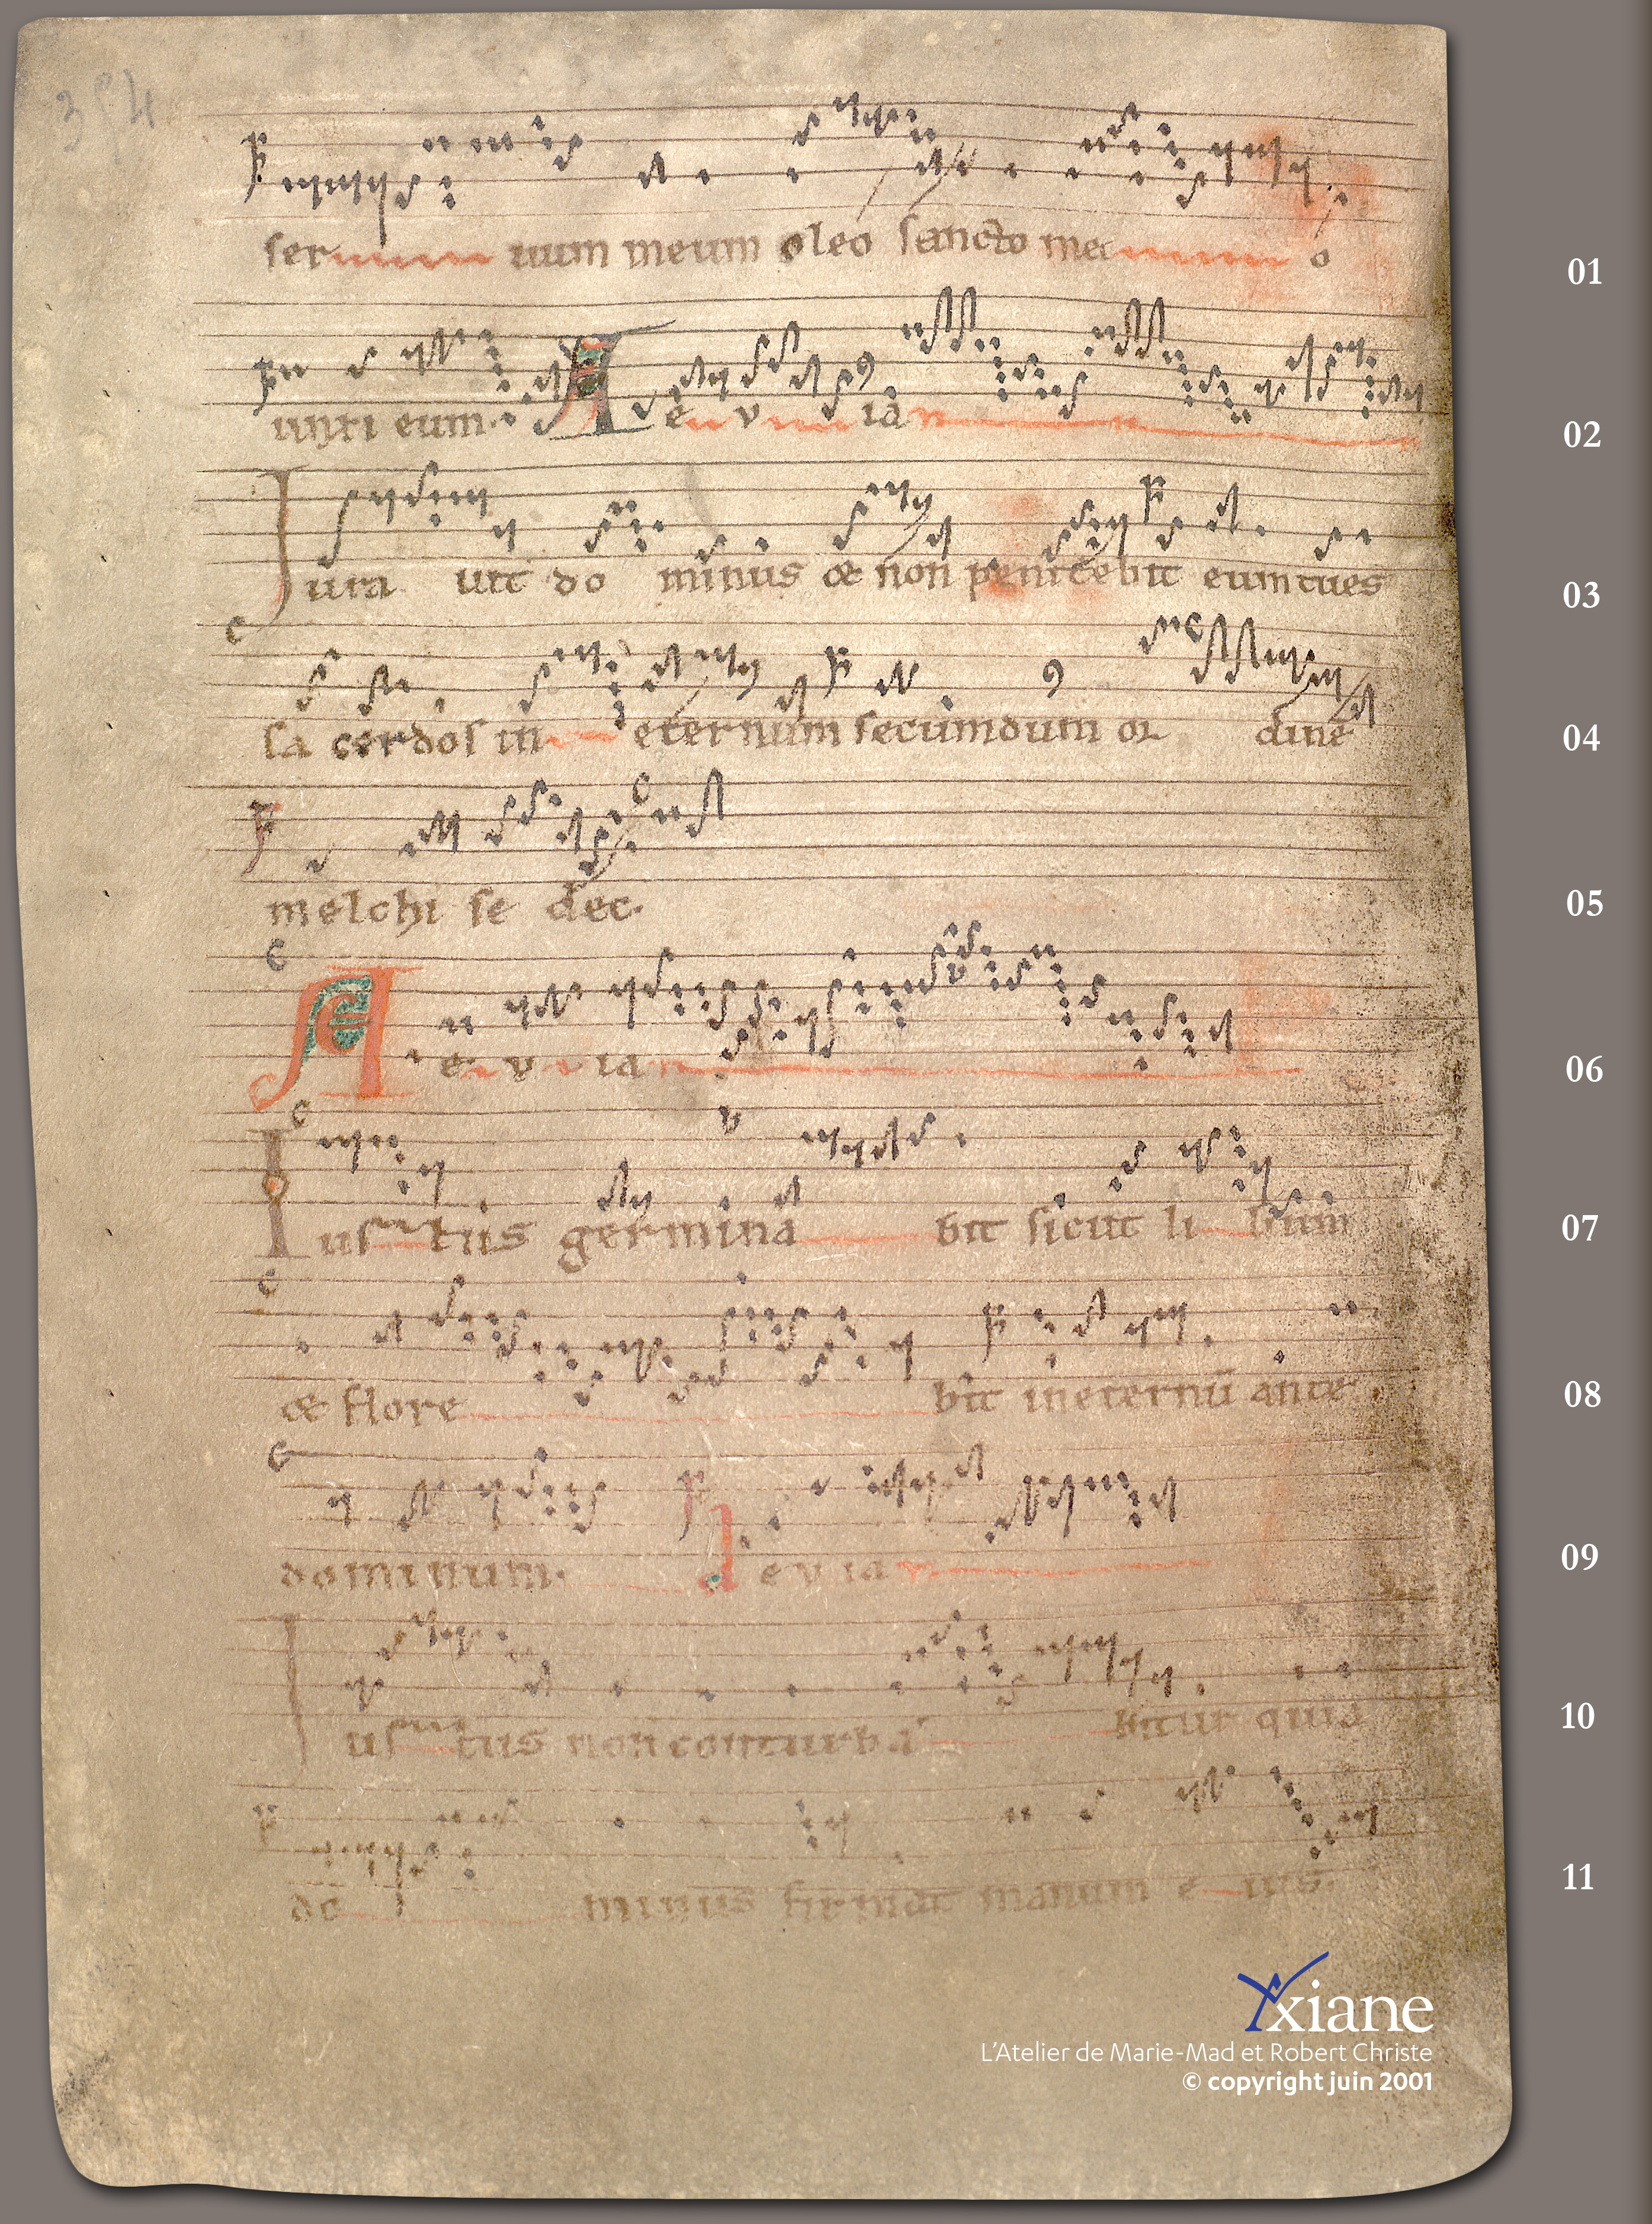 354
ser uum meum oleo sancto me o
01
unxi eum. A e v ia
02
Iura uit do minus & non penitebit eum tu es
03
sa cerdos in eternum secundum or dinē
04
melchi se dec.
05
A e v ia
06
Ius tus germina bit sicut li lium
07
& flore bit in eternū ante
08
dominum. A e v ia
09
Ius tus non conturba bitur quia
10
do minus firmat manum e ius.
11
xiane
L'Atelier de Marie-Mad et Robert Christe
© copyright juin 2001